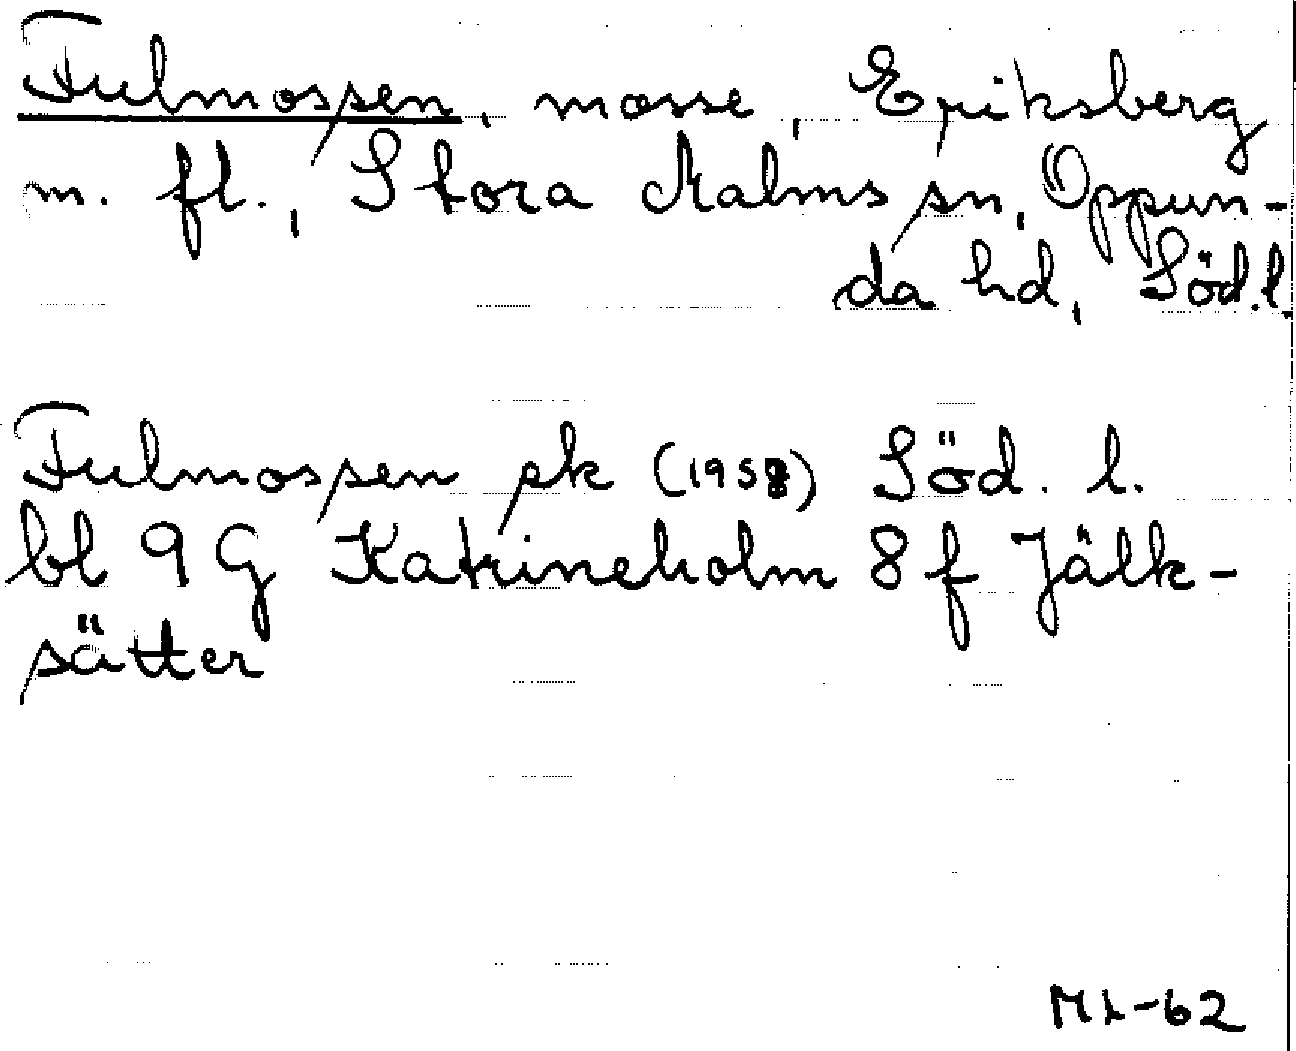 Fulmossen, mosse, Eriksberg
m. fl., Stora Malms sn, Oppun-
da hd, Söd.l.
Fulmossen ek (1958) Söd. l.
bl 9 G Katrineholm 8 f Jälk-
sätter
ML-62